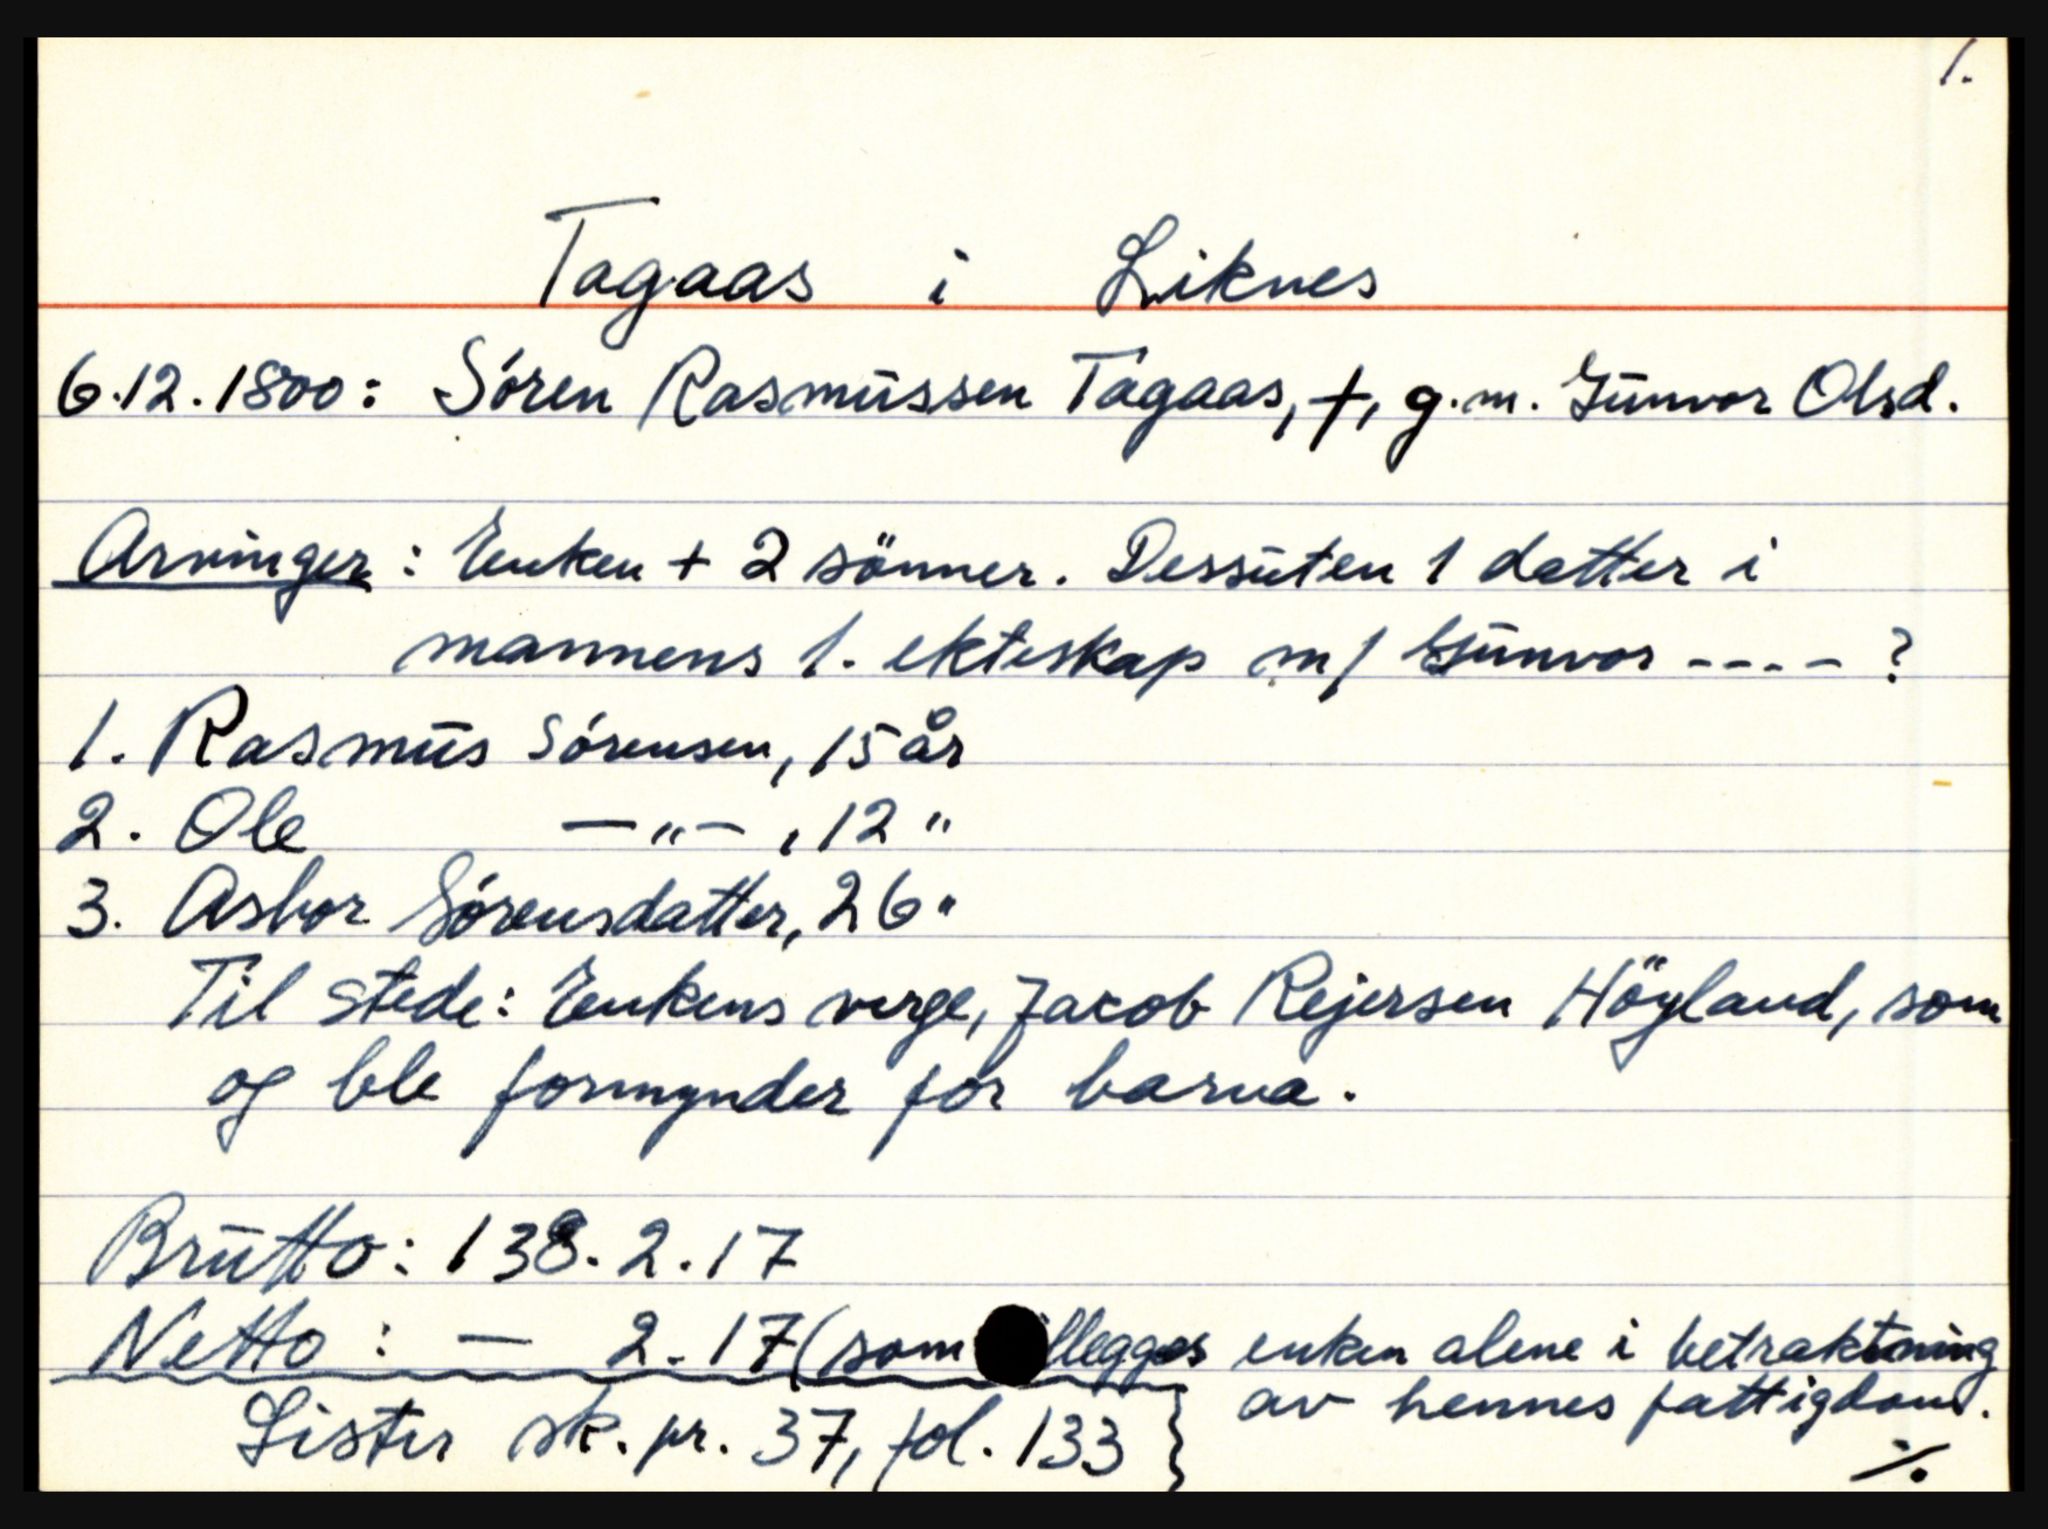 1.
Tagaas i Liknes
6.12.1800: Sóren Rasmussen Tagaas, †, g.m. Gunvor Olsd.
Arvinger: Enken + 2 sönner. Dessuten 1 datter i
mannens 1. ekteskap m/ Gunvor ---- ?
1. Rasmus Sórensen, 15 år
2. Ole —"— , 12 "
3. Asbor Sórensdatter, 26 "
Til stede: Enkens verge, Jacob Rejersen Höyland, som
og ble formynder for barna.
Brutto: 138.2.17
Netto: — 2.17 (som illegges enken alene i betraktning
av hennes fattigdom.
Lister sk. pr. 37, fol. 133 }
./.